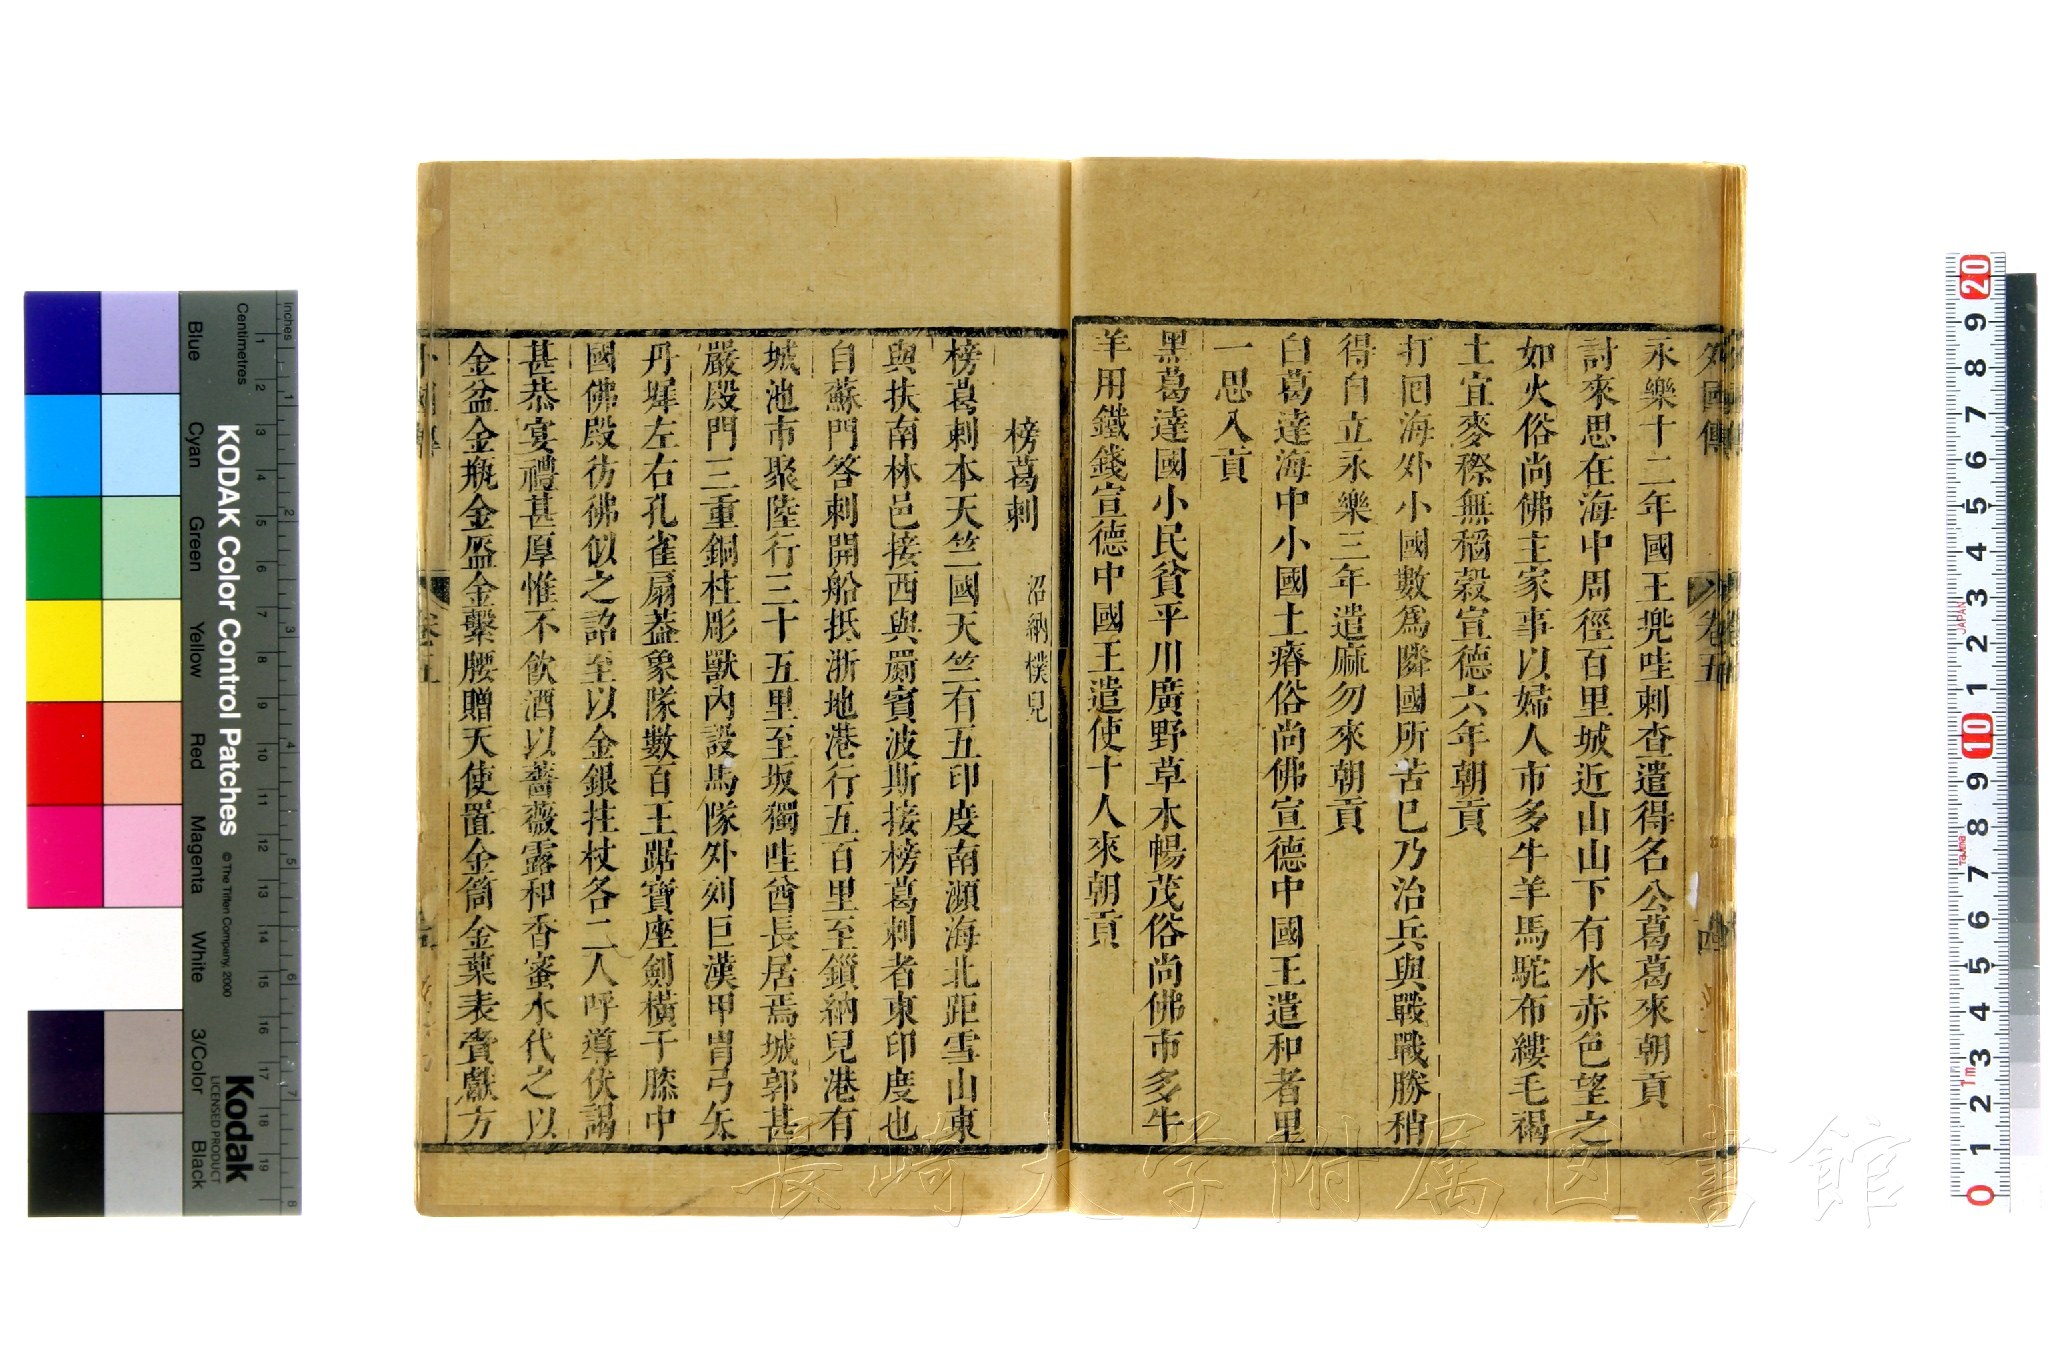 外國傳 卷五 四
永樂十二年國王兠哇剌查遣得名公葛葛來朝貢
討來思在海中周徑百里城近山山下有水赤色望之
如火俗尚佛主家事以婦人市多牛羊馬駝布縷毛褐
土宜麥穄無稻榖宣德六年朝貢
打囘海外小國數爲隣國所苦已乃治兵與戰戰勝稍
得自立永樂三年遣麻勿來朝貢
白葛達海中小國土瘠俗尚佛宣德中國王遣和者里
一思入貢
黑葛達國小民貧平川廣野草木暢茂俗尚佛市多牛
羊用鐵錢宣德中國王遣使十人來朝貢
榜葛剌 沼納樸兒
榜葛剌本天竺國天竺有五印度南瀕海北距雪山東
與扶南林邑接西與罽賓波斯接榜葛剌者東印度也
自蘇門答剌開船抵浙地港行五百里至鎖納兒港有
城池市聚陸行三十五里至坂獨哇酋長居焉城郭甚
嚴殿門三重銅柱彫獸內設馬隊外列巨漢甲胄弓矢
丹墀左右孔雀扇葢象隊數百王踞寶座劍橫于膝中
國佛殿彷彿似之詔至以金銀拄杖各二人呼導伏謁
甚恭宴禮甚厚惟不飲酒以薔薇露和香蜜水代之以
金盆金瓶金盔金繫腰贈天使置金筒金葉表賫獻方
外國傳 卷五
KODAK Color Control Patches
© The Tiffen Company, 2000
Kodak
LICENSED PRODUCT
Inches
Centimetres
Blue
Cyan
Green
Yellow
Red
Magenta
White
3/Color
Black
長崎大学附属図書館
JAPAN